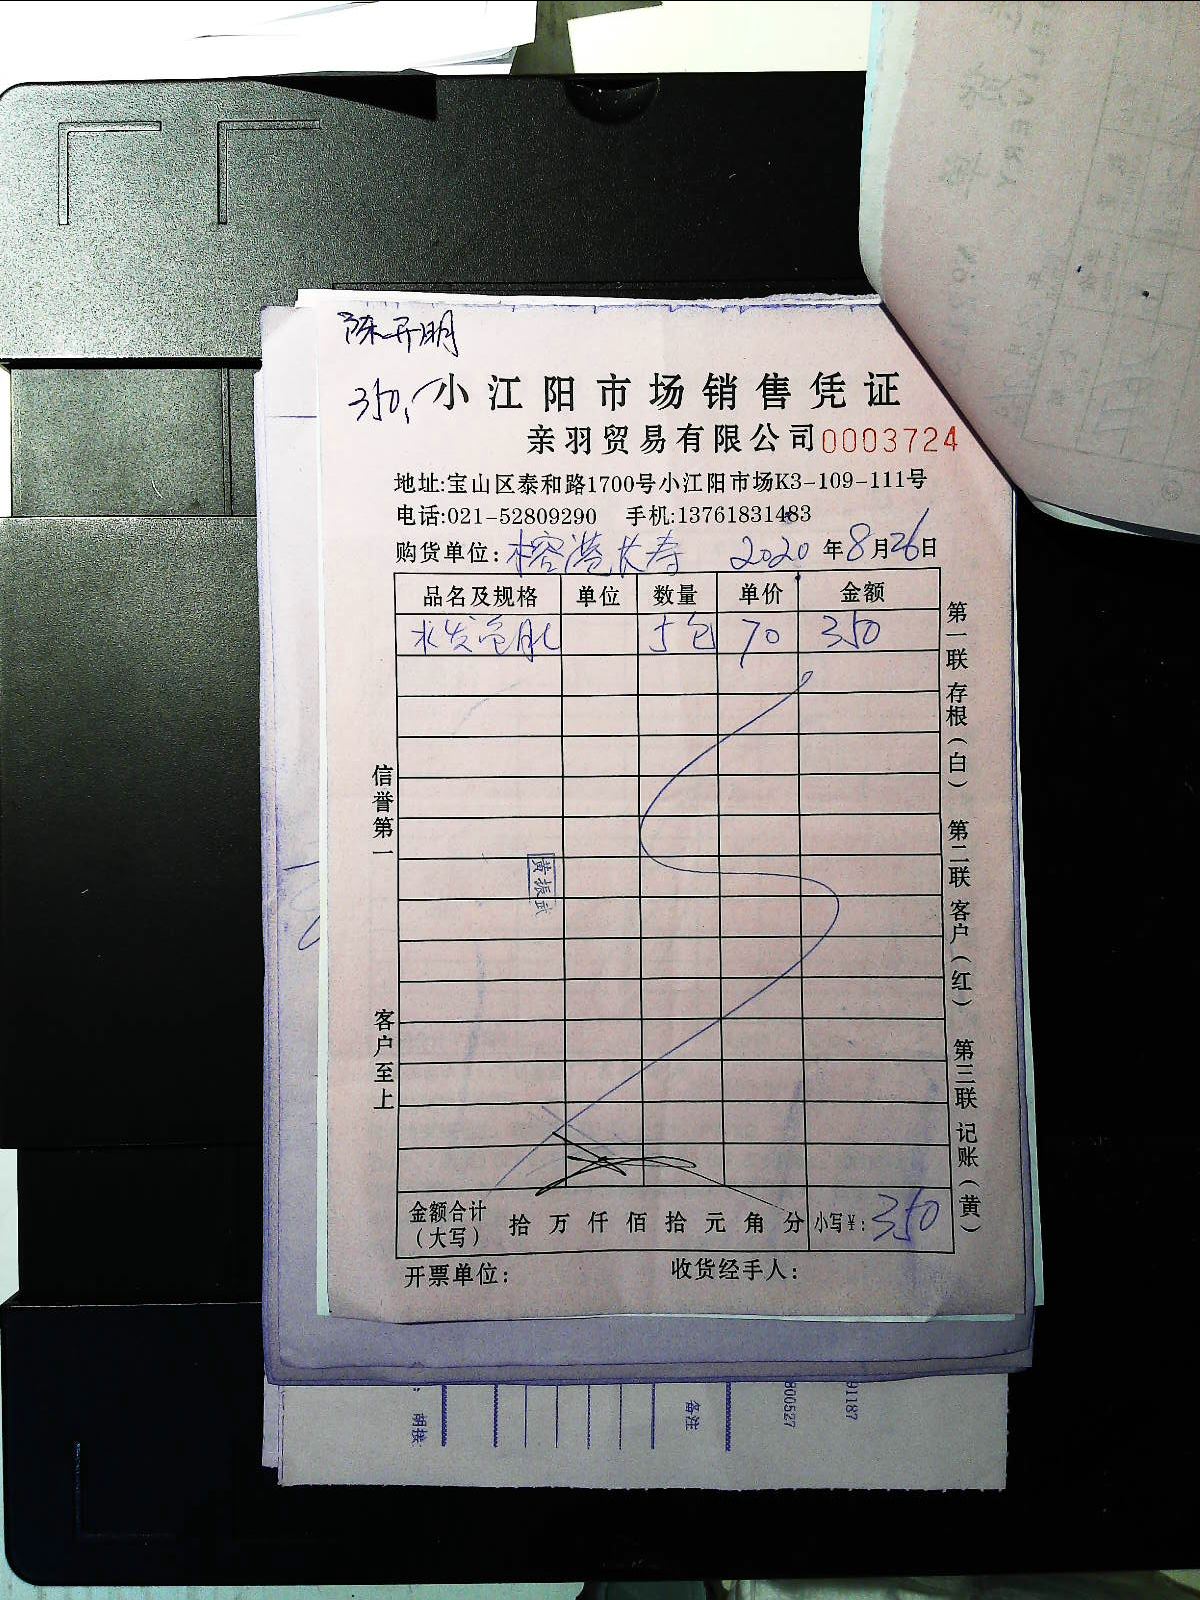 陈开明
350,
小江阳市场销售凭证
亲羽贸易有限公司 0003724
地址:宝山区泰和路1700号小江阳市场K3-109-111号
电话:021-52809290 手机:13761831483
购货单位: 榕港长寿 2020 年 8 月 26 日
品名及规格 单位 数量 单价 金额
水发鱼肚 5包 70 350
信誉第一
客户至上
黄振武
第一联 存根(白) 第二联 客户(红) 第三联 记账(黄)
金额合计(大写) 拾 万 仟 佰 拾 元 角 分 小写¥: 350
开票单位: 收货经手人:
备注
800527
91187